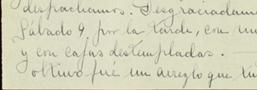 despachamos. Desgraciadam
Sábado 9, por la tarde, con un
y con cajas destempladas. —
último fué un arreglo que tu